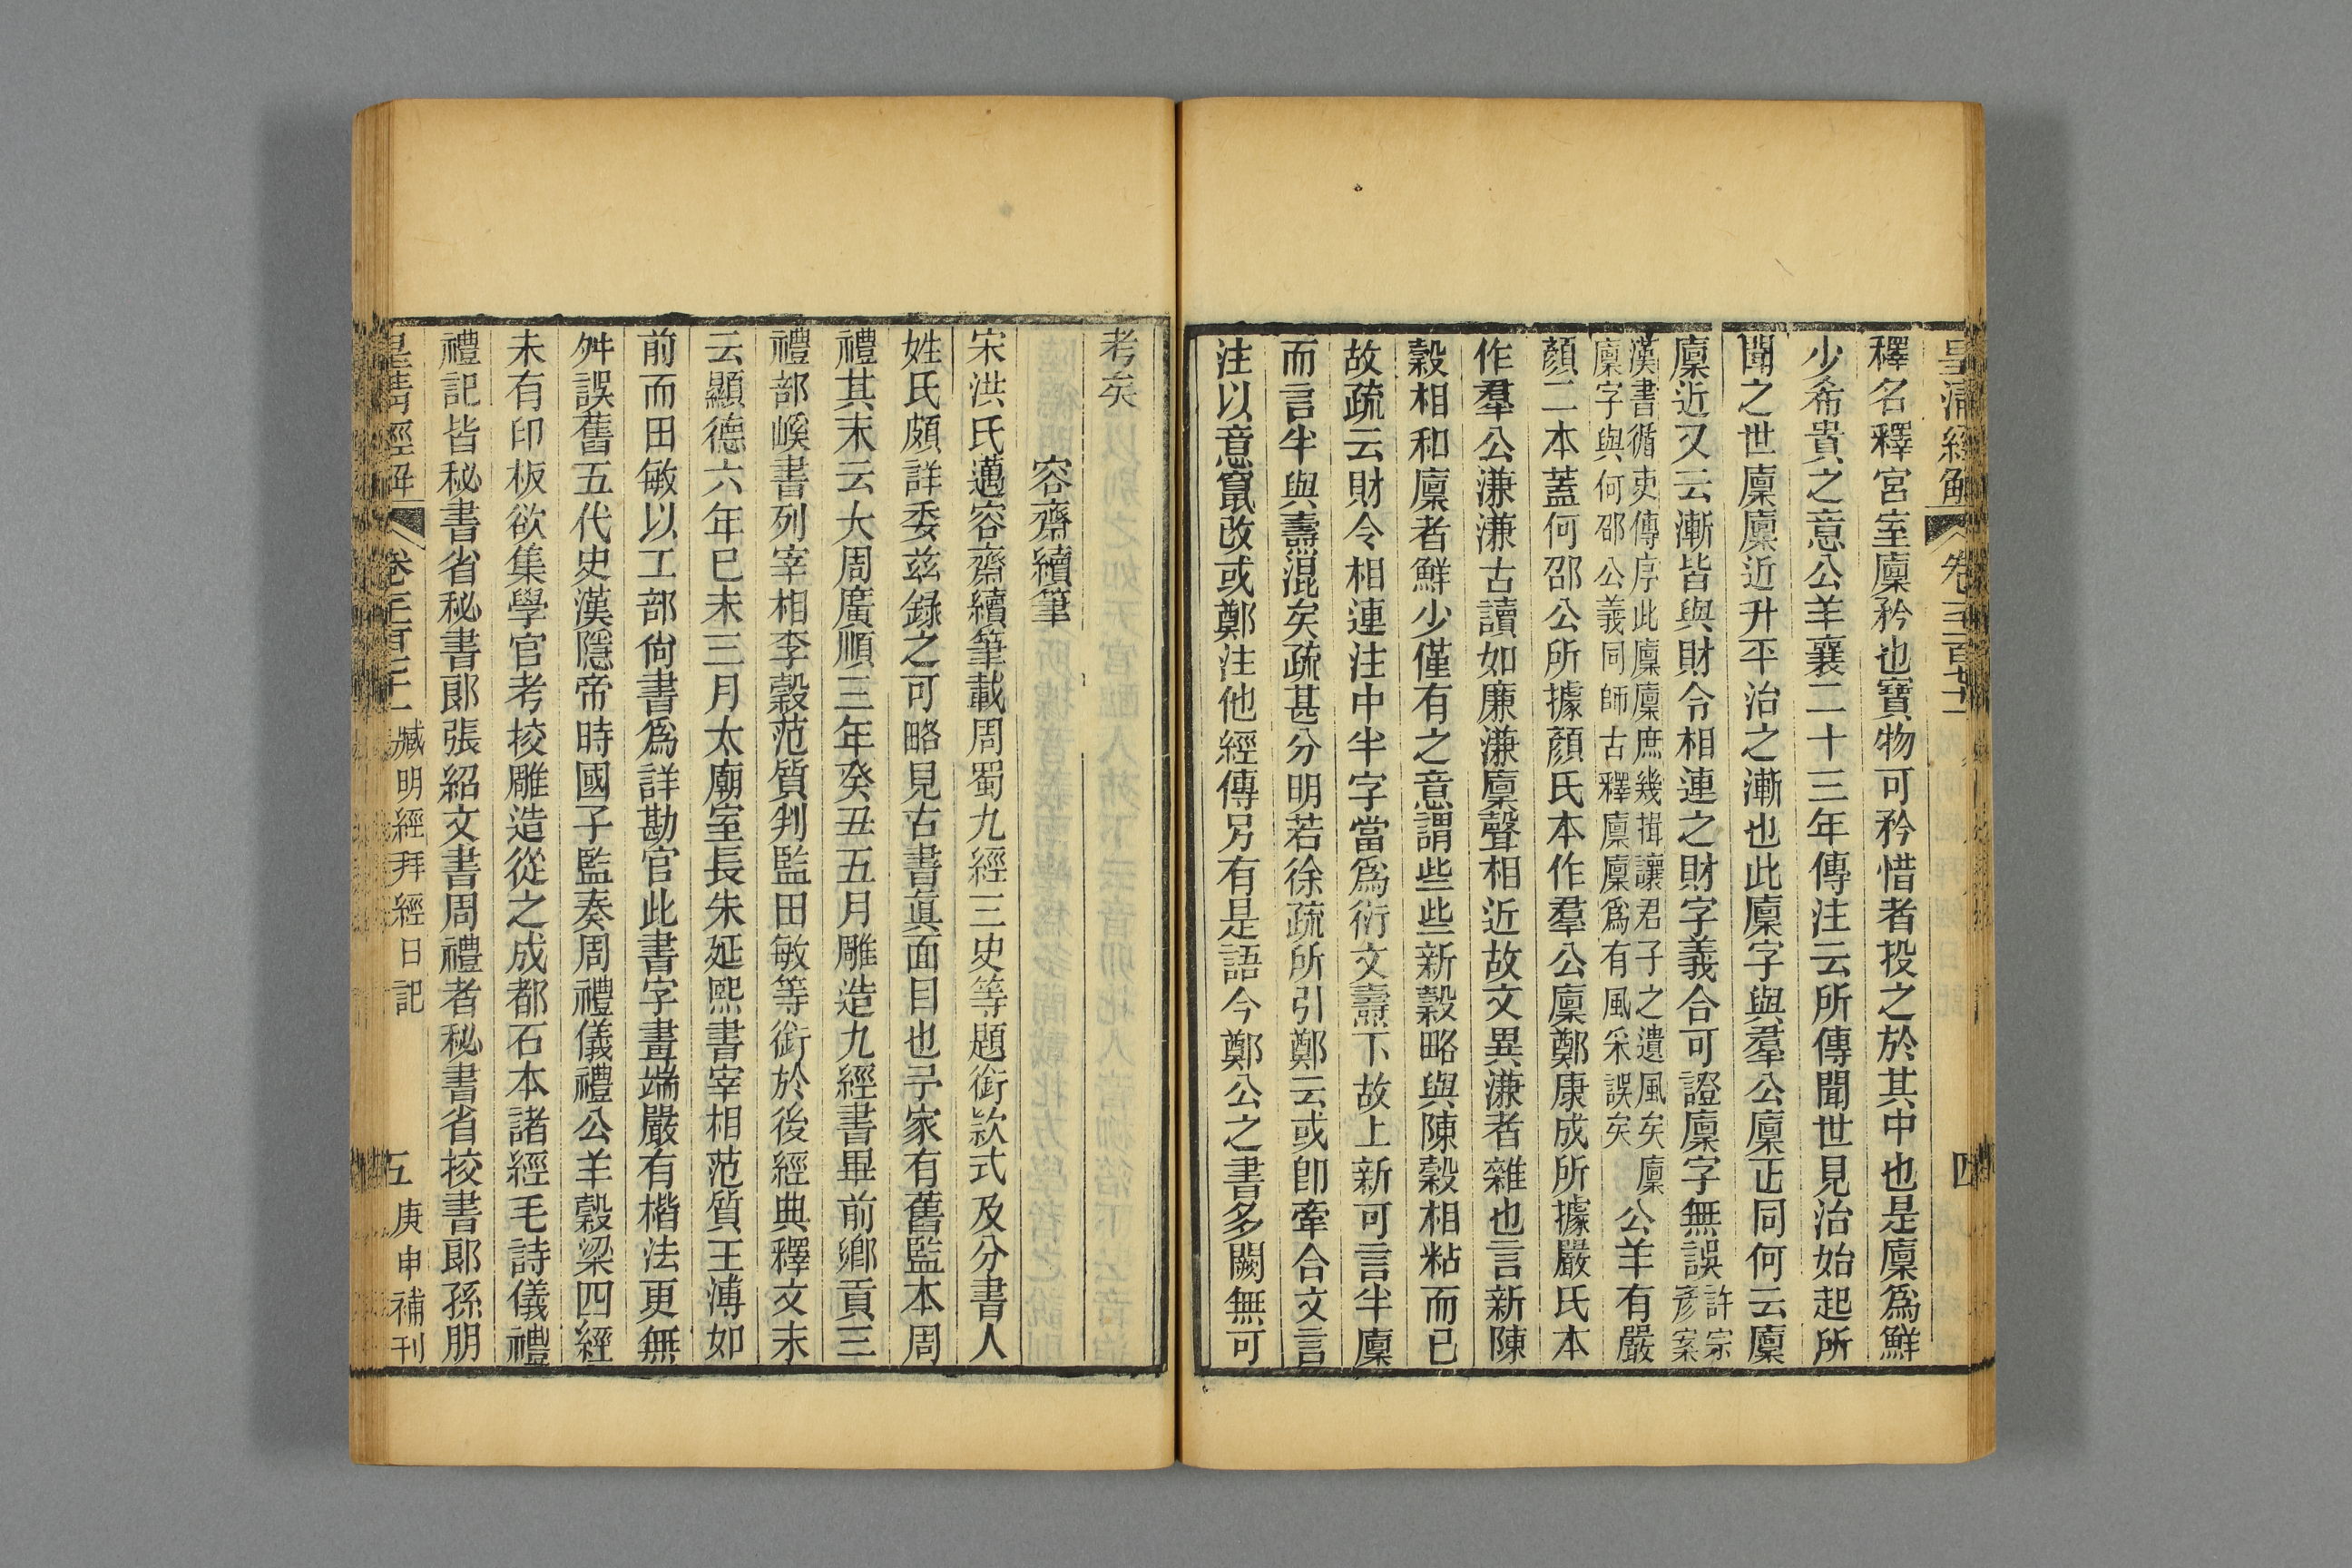 皇清經解 卷 四
釋名釋宮室廩矜也寶物可矜惜者投之於其中也是廩爲鮮
少希貴之意公羊襄二十三年傳注云所傳聞世見治始起所
聞之世廩廩近升平治之漸也此廩字與羣公廩正同何云廩
廩近又云漸皆與財令相連之財字義合可證廩字無誤許宗彥案
漢書循吏傳序此廩廩庶幾揖讓君子之遺風矣廩
廩字與何邵公義同師古釋廩廩爲有風采誤矣 公羊有嚴
顏二本蓋何邵公所據顏氏本作羣公廩鄭康成所據嚴氏本
作羣公溓溓古讀如廉溓廩聲相近故文異溓者雜也言新陳
穀相和廩者鮮少僅有之意謂些些新穀略與陳穀相粘而已
故疏云財令相連注中半字當爲衍文燾下故上新可言半廩
而言半與燾混矣疏甚分明若徐疏所引鄭云或卽牽合文言
注以意竄改或鄭注他經傳另有是語今鄭公之書多闕無可
考矣
容齋續筆
宋洪氏邁容齋續筆載周蜀九經三史等題銜款式及分書人
姓氏頗詳委兹錄之可略見古書眞面目也予家有舊監本周
禮其末云大周廣順三年癸丑五月雕造九經書畢前鄉貢三
禮部嵠書列宰相李穀范質判監田敏等銜於後經典釋文末
云顯德六年巳未三月太廟室長朱延熙書宰相范質王溥如
前而田敏以工部尙書爲詳勘官此書字畫端嚴有楷法更無
舛誤舊五代史漢隱帝時國子監奏周禮儀禮公羊穀梁四經
未有印板欲集學官考挍雕造從之成都石本諸經毛詩儀禮
禮記皆秘書省秘書郎張紹文書周禮者秘書省挍書郎孫朋
皇清經解 卷 臧明經拜經日記 五 庚申補刊